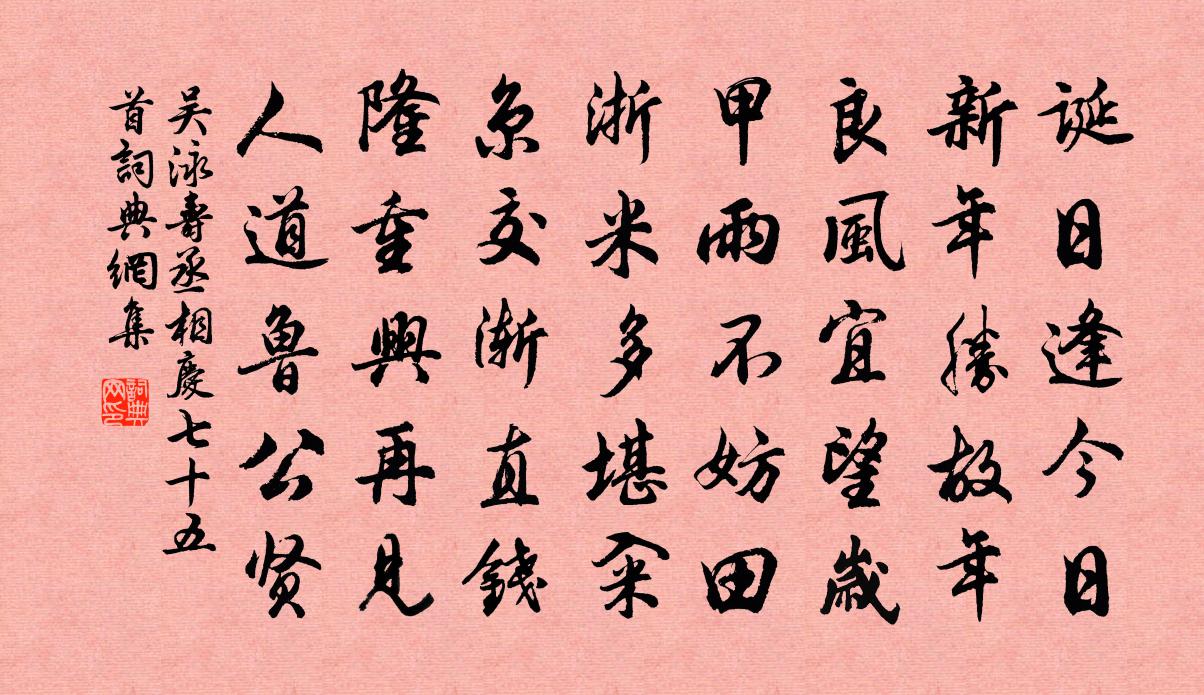 誕日逢今日
新年勝故年
良風宜望歲
甲雨不妨田
浙米多堪籴
京交漸直錢
隆重興再見
人道魯公贤
吴泳壽丞相慶七十五
首詞典網集
詞典网印